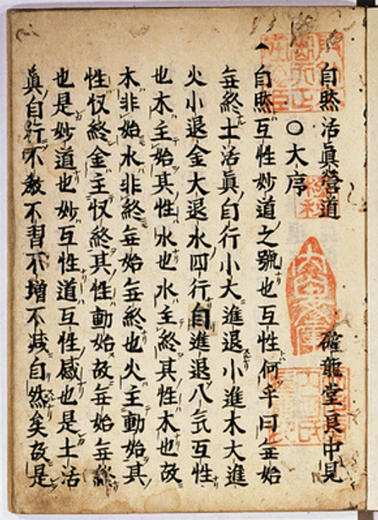 自然活眞營道　確龍堂良中見
○大序
自然互性妙道之號也互性何乎曰無始
無終土活眞自行小大進退小進木大進
火小退金大退水四行自進退八气互性
也木主始其性水也水主終其性木也故
木非始水非終無始無終也火主動始其
性收終金主收終其性動始故無始無終
也是妙道也妙互性道互性感也是土活
眞自行不教不習不增不減自然矣故是